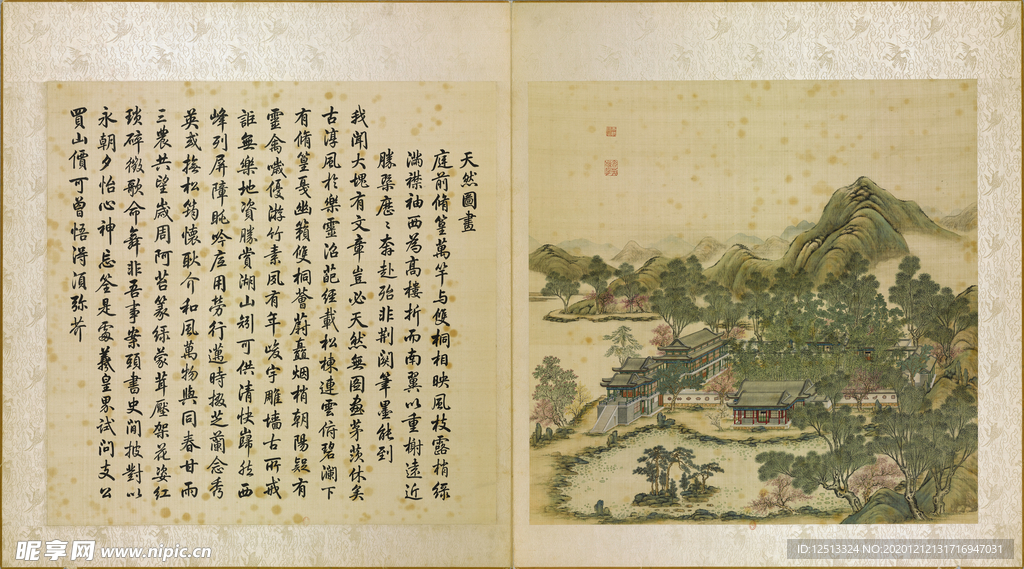 天然圖畫
庭前脩篁萬竿与雙桐相映風枝露梢綠
滿襟袖西為高樓折而南翼以重榭遠近
勝槩歷歷奔赴殆非荊関筆墨能到
我聞大塊有文章豈必天然無圖畫茅茨休矣
古淳風於樂靈沼葩經載松棟連雲俯碧瀾下
有脩篁戛幽籟雙桐薈蔚矗烟梢朝陽疑有
靈禽噦優游竹素夙有年峻宇雕墻古所戒
詎無樂地資勝賞湖山矧可供清快歸然西
峰列屏障眺吟底用勞行邁時掇芝蘭念秀
英或撫松筠懷耿介和風萬物與同春甘雨
三農共望歲周阿苔篆綠蒙茸壓架花姿紅
瑣碎徵歌命舞非吾事案頭書史閒披對以
永朝夕怡心神忘筌是處羲皇界試問支公
買山價可曾悟得須彌芥
昵享网 www.nipic.cn
ID:12513324 NO:20201212131716947031